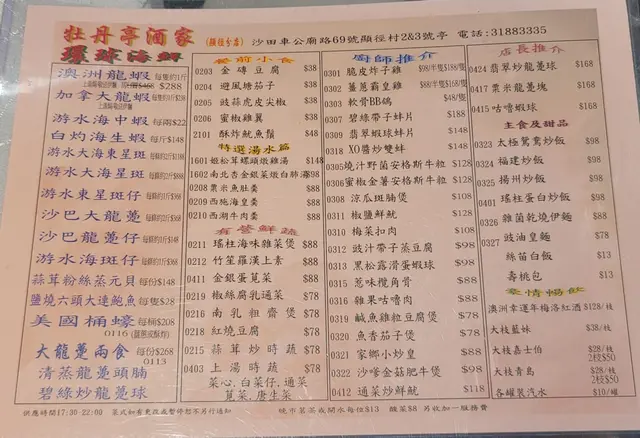 牡丹亭酒家
(顯徑分店)
沙田車公廟路69號顯徑村2&3號亭 電話:31883335
環球海鮮
澳洲龍蝦 每隻約1斤 $288
加拿大龍蝦 每隻約1斤
游水海中蝦 每兩$22
白灼海生蝦 每斤$148
游水大海東星斑
游水大海星斑
游水東星斑仔
沙巴大龍躉
沙巴龍躉仔
游水海斑仔
蒜茸粉絲蒸元貝 每份$148
鹽燒六頭大連鮑魚 每隻$28
美國桶蠔 每桶$208
0116
大龍躉兩食 每份$268
0113
清蒸龍躉頭腩
碧綠炒龍躉球
餐前小食
0203 金磚豆腐 $38
0204 避風塘茄子 $38
0205 豉蒜虎皮尖椒 $38
0206 蜜椒雞翼 $38
2101 酥炸魷魚鬚 $48
特選湯水篇
1601 姬松茸螺頭燉雞湯 $148
1602 南北杏金銀菜燉白肺湯 $98
0208 粟米魚肚羹 $88
0209 西施海皇羹 $88
0210 西湖牛肉羹 $88
有營鮮蔬
0211 瑤柱海味雜菜煲 $88
0212 竹笙羅漢上素 $88
0411 金銀蛋莧菜 $88
0219 椒絲腐乳通菜 $78
0216 南乳粗齋煲 $78
0218 紅燒豆腐 $78
0215 蒜茸炒時蔬 $78
0403 上湯時蔬 $78
菜心.白菜仔.通菜
莧菜.唐生菜
廚師推介
0301 脆皮炸子雞 $98/半隻$188/隻
0302 薑蔥霸皇雞 $88/半隻$168/隻
0303 軟骨BB鴿 $48/隻
0307 碧綠帶子蚌片 $188
0309 翡翠蝦球蚌片 $188
0318 XO醬炒雙蚌 $148
0305 燒汁野菌安格斯牛粒 $128
0306 蜜椒金薯安格斯牛粒 $128
0308 涼瓜斑腩煲 $108
0311 椒鹽鮮魷 $128
0310 梅菜扣肉 $108
0312 豉汁帶子蒸豆腐 $98
0313 黑松露滑蛋蝦球 $98
0315 惹味欖角骨 $88
0316 雜果咕嚕肉 $88
0319 鹹魚雞粒豆腐煲 $78
0320 魚香茄子煲 $78
0321 家鄉小炒皇 $88
0322 沙嗲金菇肥牛煲 $98
0412 通菜炒鮮魷 $118
店長推介
0424 翡翠炒龍躉球 $168
0417 粟米龍躉塊 $168
0415 咕嚕蝦球 $168
主食及甜品
0323 太極鴛鴦炒飯 $98
0324 福建炒飯 $98
0325 揚州炒飯 $98
0401 瑤柱蛋白炒飯 $98
0326 雜菌乾燒伊麵 $88
0327 豉油皇麵 $78
絲苗白飯 $13
壽桃包 $13
豪情暢飲
澳洲幸運年梅洛紅酒 $128/枝
大枝藍妹 $38/枝
大枝嘉士伯 $28/枝
2枝$50
大枝青島 $28/枝
2枝$50
各罐裝汽水 $10/罐
供應時間17:30-22:00 菜式如有更改或暫停恕不另行通知 晚市茗茶或開水每位$13 醃菜$8 另收加一服務費